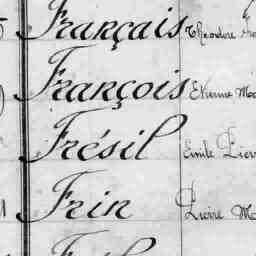 Français Théodore
François Etienne
Frésil Emile
Frin Pierre